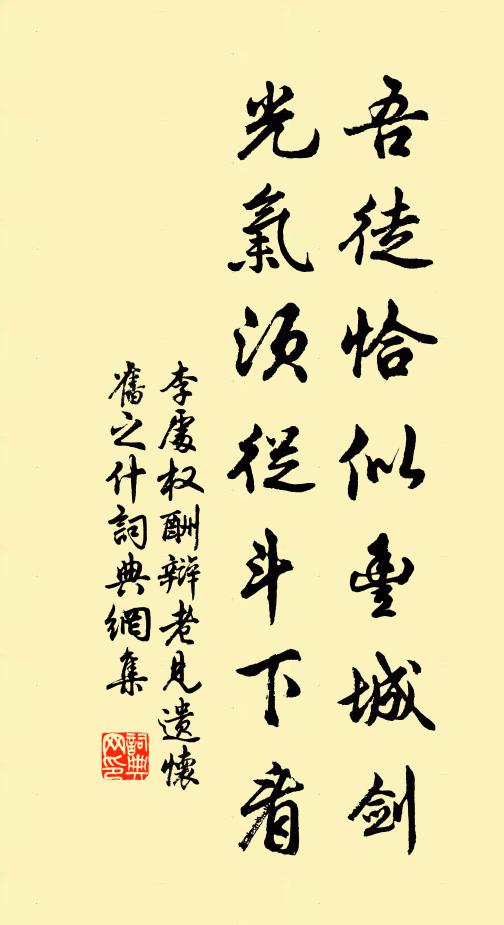 吾徒恰似豐城劍
光氣須從斗下看
李處权酬辯老見遗懷
舊之什詞典網集
詞典
网印